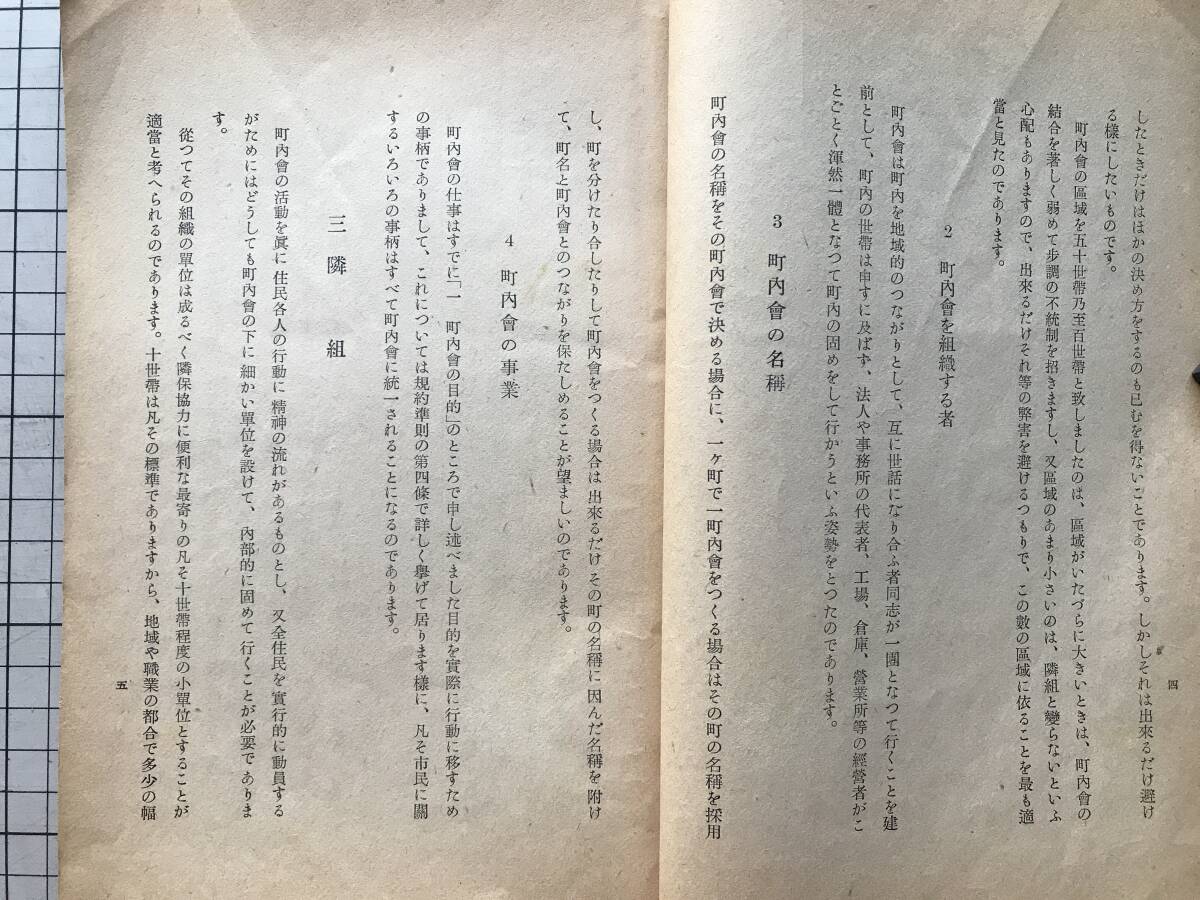 したときだけはほかの決め方をするのも已むを得ないことであります。しかしそれは出來るだけ避け
る樣にしたいものです。
町內會の區域を五十世帶乃至百世帶と致しましたのは、區域がいたづらに大きいときは、町內會の
結合を著しく弱めて步調の不統制を招きますし、又區域のあまり小さいのは、隣組と變らないといふ
心配もありますので、出來るだけそれ等の弊害を避けるつもりで、この數の區域に依ることを最も適
當と見たのであります。
2 町內會を組織する者
町內會は町內を地域的のつながりとして、互に世話になり合ふ者同志が一團となつて行くことを建
前として、町內の世帶は申すに及ばず、法人や事務所の代表者、工場、倉庫、營業所等の經營者がこ
とごとく渾然一體となつて町內の固めをして行かうといふ姿勢をとつたのであります。
3 町內會の名稱
町內會の名稱をその町內會で決める場合に、一ヶ町で一町內會をつくる場合はその町の名稱を採用
四
し、町を分けたり合したりして町內會をつくる場合は出來るだけその町の名稱に因んだ名稱を附け
て、町名と町內會とのつながりを保たしめることが望ましいのであります。
4 町內會の事業
町內會の仕事はすでに「一 町內會の目的」のところで申し述べました目的を實際に行動に移すため
の事柄でありまして、これについては規約準則の第四條で詳しく擧げて居ります樣に、凡そ市民に關
するいろいろの事柄はすべて町內會に統一されることになるのであります。
三 隣組
町內會の活動を眞に住民各人の行動に精神の流れがあるものとし、又全住民を實行的に動員する
がためにはどうしても町內會の下に細かい單位を設けて、內部的に固めて行くことが必要でありま
す。
從つてその組織の單位は成るべく隣保協力に便利な最寄りの凡そ十世帶程度の小單位とすることが
適當と考へられるのであります。十世帶は凡その標準でありますから、地域や職業の都合で多少の幅
五